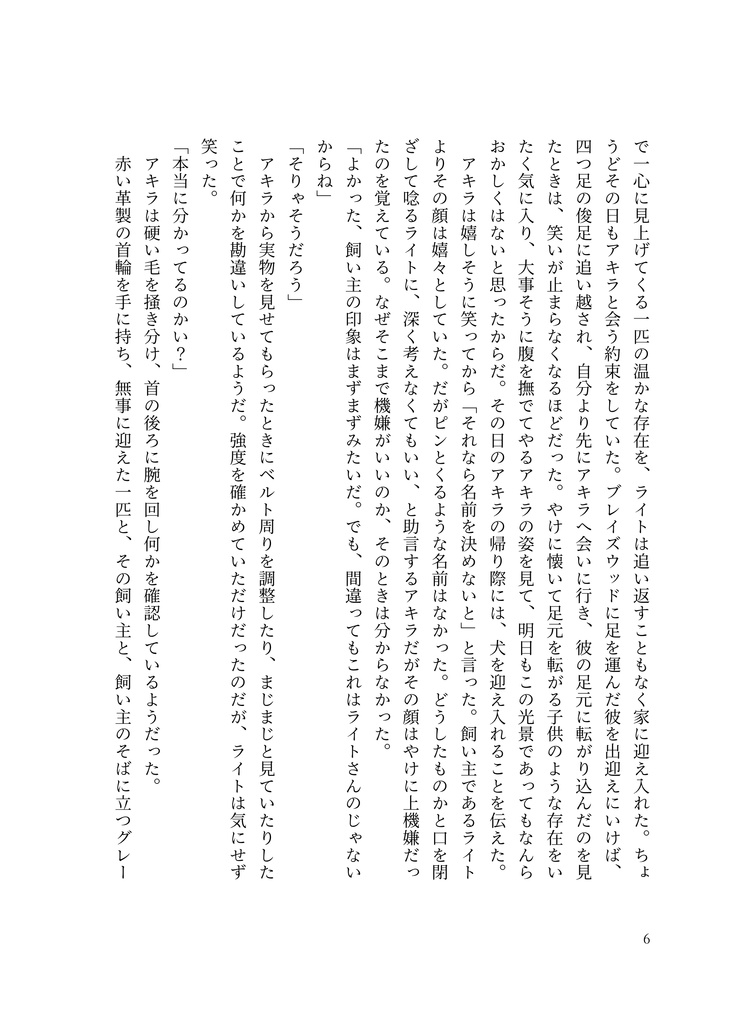 で一心に見上げてくる一匹の温かな存在を、ライトは追い返すこともなく家に迎え入れた。ちょ
うどその日もアキラと会う約束をしていた。ブレイズウッドに足を運んだ彼を出迎えにいけば、
四つ足の俊足に追い越され、自分より先にアキラへ会いに行き、彼の足元に転がり込んだのを見
たときは、笑いが止まらなくなるほどだった。やけに懐いて足元を転がる子供のような存在をい
たく気に入り、大事そうに腹を撫でてやるアキラの姿を見て、明日もこの光景であってもなんら
おかしくはないと思ったからだ。その日のアキラの帰り際には、犬を迎え入れることを伝えた。
アキラは嬉しそうに笑ってから「それなら名前を決めないと」と言った。飼い主であるライト
よりその顔は嬉々としていた。だがピンとくるような名前はなかった。どうしたものかと口を閉
ざして唸るライトに、深く考えなくてもいい、と助言するアキラだがその顔はやけに上機嫌だっ
たのを覚えている。なぜそこまで機嫌がいいのか、そのときは分からなかった。
「よかった、飼い主の印象はまずまずみたいだ。でも、間違ってもこれはライトさんのじゃない
からね」
「そりゃそうだろう」
アキラから実物を見せてもらったときにベルト周りを調整したり、まじまじと見ていたりした
ことで何かを勘違いしているようだ。強度を確かめていただけだったのだが、ライトは気にせず
笑った。
「本当に分かってるのかい？」
アキラは硬い毛を掻き分け、首の後ろに腕を回し何かを確認しているようだった。
赤い革製の首輪を手に持ち、無事に迎えた一匹と、その飼い主と、飼い主のそばに立つグレー
6